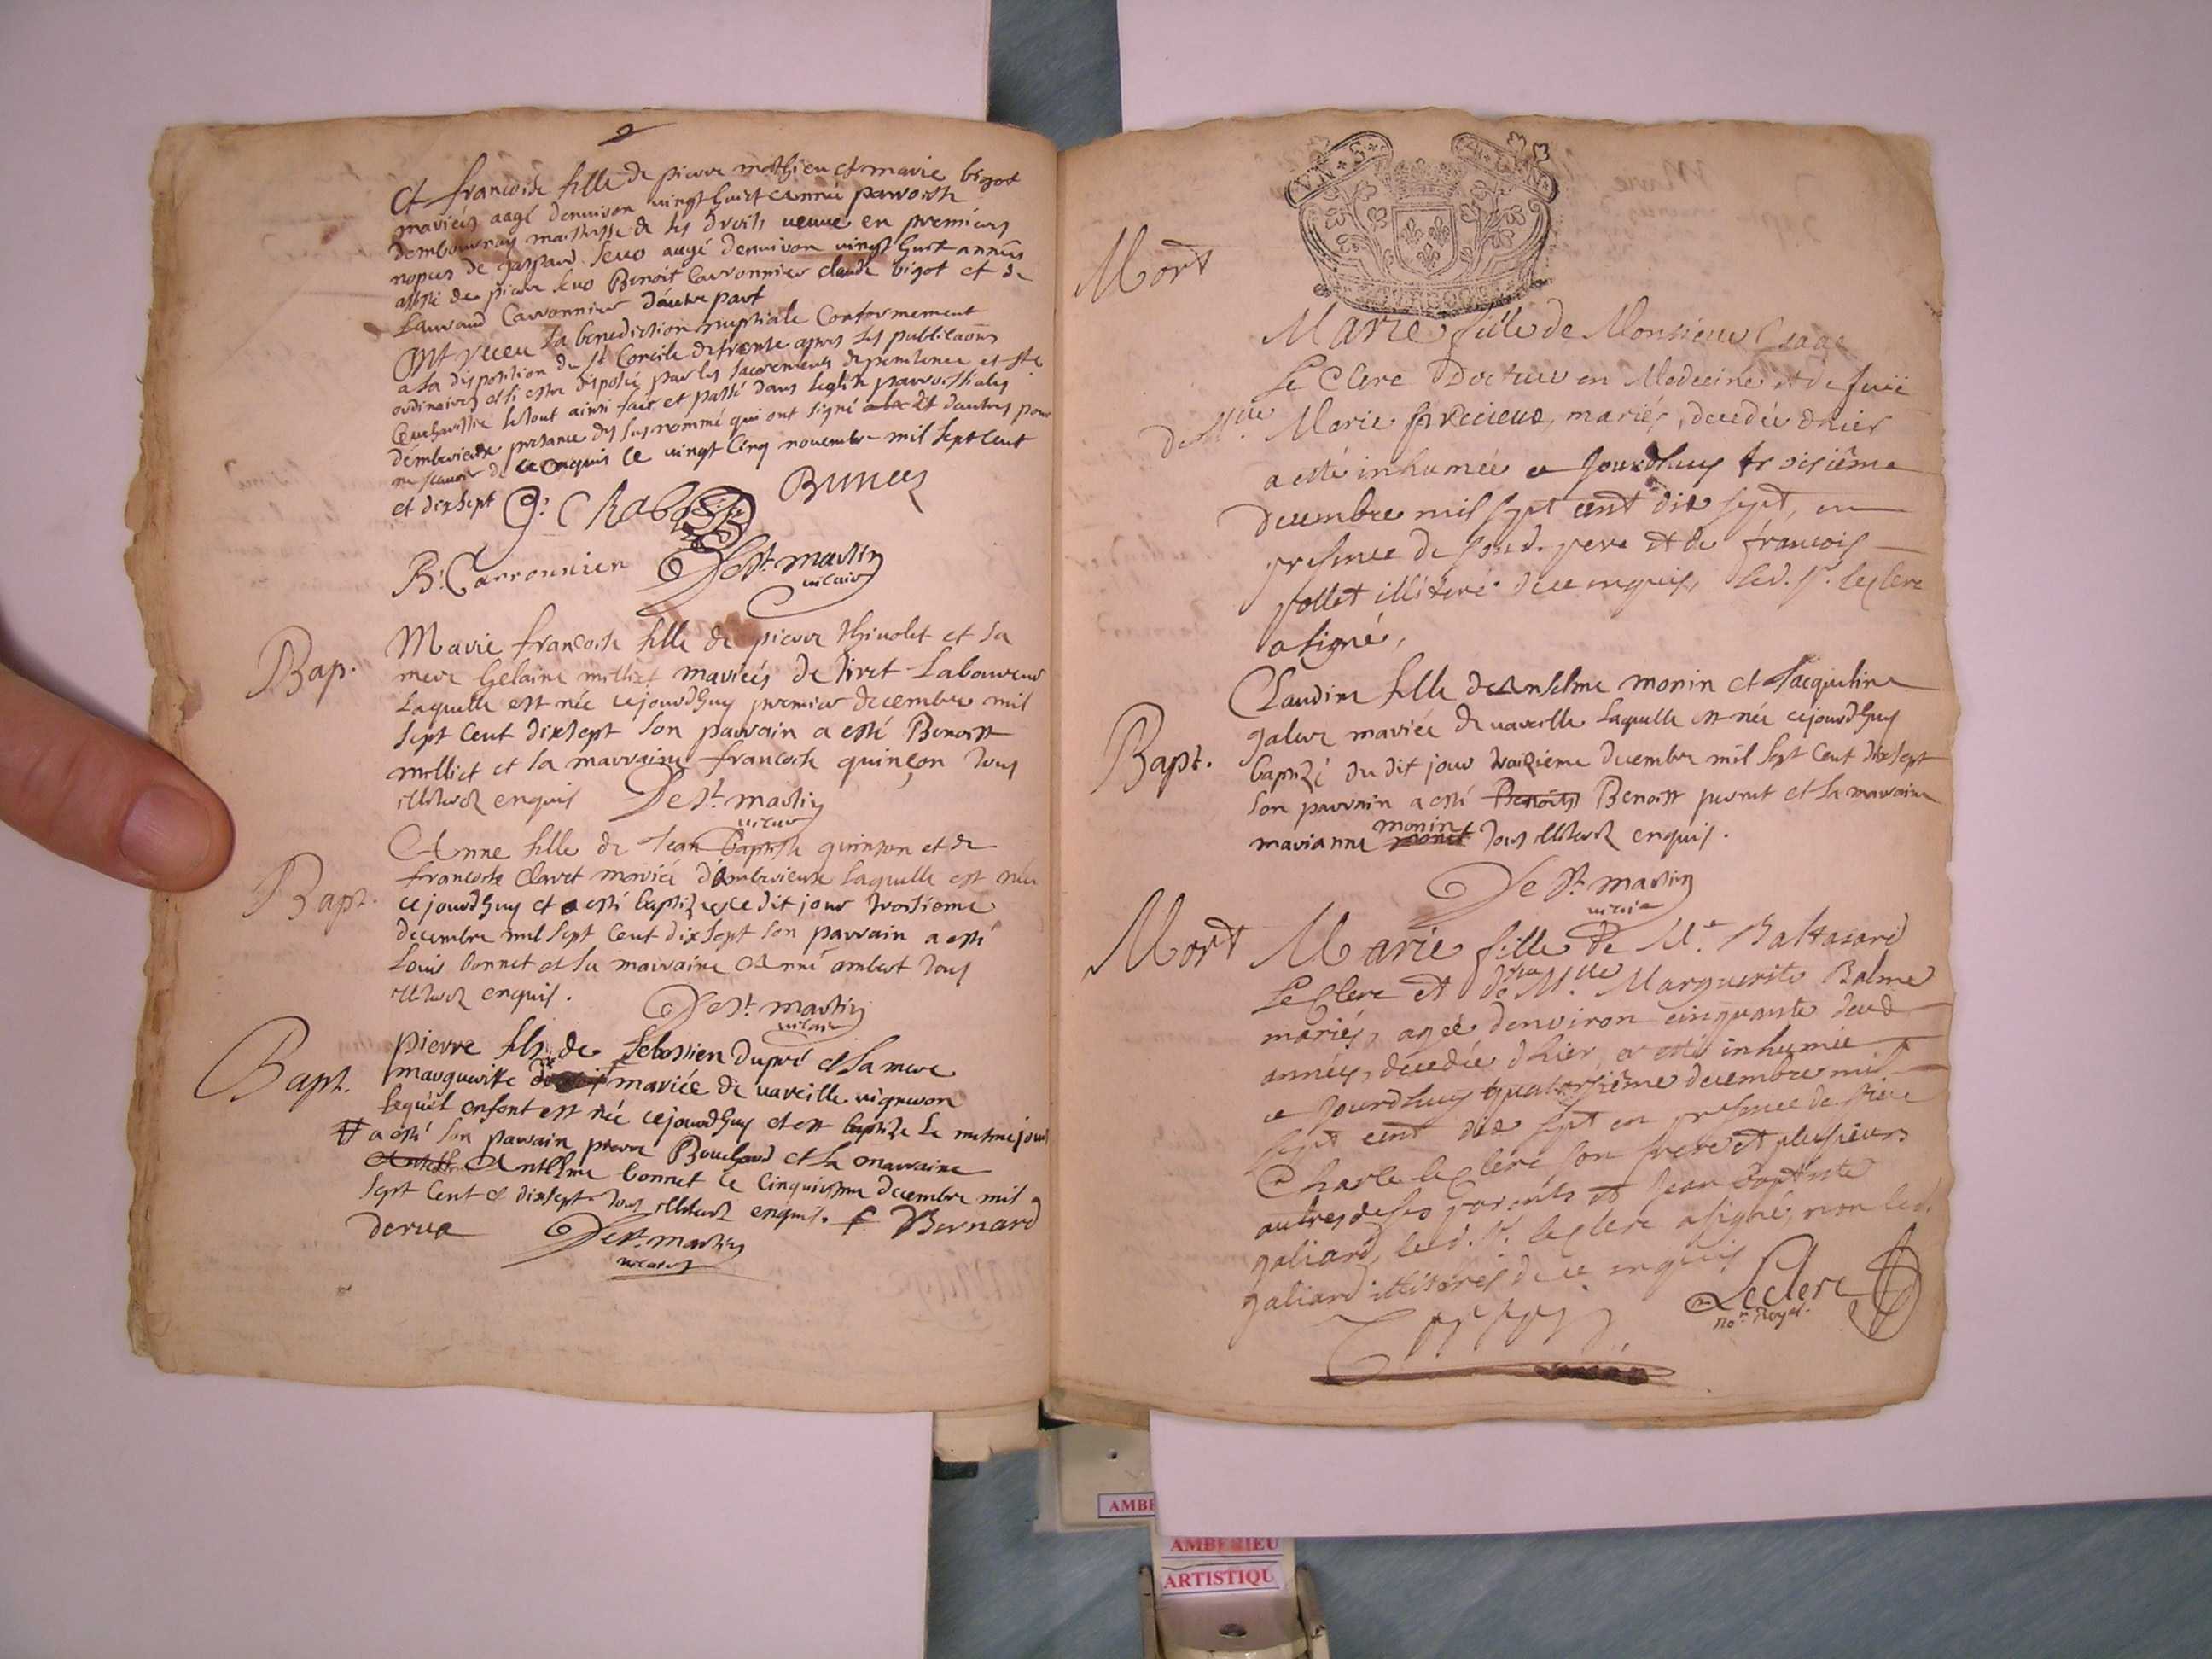 et francoise fille de pierre mathieu et marie bigot
mariées aagé denviron vingt huict année parroisse
dembournay maitresse de ses droits veuve en premiers
nopces de gaspard seuo aagé denviron vingt huict années
assisté de pierre seuo Benoit Carronnier claude bigot et de
Laurand Carronnier dautre part
Ont receu la benediction nuptiale Conformement
a la disposition du st Concile de trente apres les publicaons
ordinaires et si estre disposée par les sacrements de penitence et ste
Eucharistie le tout ainsi fait et passé dans leglise parroissiales
demberieux presance des susnommé qui ont signé et dautres pour
ne scavoir de ce enquis ce vingt Cinq novembre mil sept Cent
et dixsept
Buness
B: Carronnier De St. martin
vicaire
Bap.
Marie francoise fille de pierre thivolet et sa
mere Gelaine milliet mariées de tiret Laboureur
Laquelle est née cejourdhuy premier decembre mil
sept Cent dixsept son parrain a esté Benoist
milliet et la marraine francoise quinçon tous
illiterez enquis De St. martin
vicaire
Bapt.
Anne fille de Jean baptiste quinson et de
francoise Clavet mariée d'Amberieux laquelle est née
cejourdhuy et a esté baptizée ce dit jour troisieme
decembre mil sept Cent dixsept son parrain a esté
Louis bonnet et la marraine Anne ambert tous
illiterez enquis.
De St. martin
vicaire
Bapt.
pierre fils de Sebastien dupré et sa mere
marguerite mariée de vareille vigneron
lequel enfant est née cejourdhuy et est baptizé le mesme jour
a esté son parrain pierre Bouchard et la marraine
Anthelme bonnet ce Cinquiesme decembre mil
sept Cent et dixsept tous illiterez enquis. f Bernard
derua De St. martin
vicaire
Mort
Marie fille de Monsieur Isaac
Le Clerc Docteur en Medecine et de fuië
De Mlle Marie precieux, mariés, decedée d'hier
a esté inhumée ce Jourdhuy troisiême
decembre mil sept cent dix sept, en
presence de sond. pere et de françois
pollet illiteré de ce enquis, led. Sr. leclerc
a signé,
Bapt.
Claudine fille de Anselme monin et Jacqueline
galere mariée de vareille laquelle est née cejourdhuy
baptizé du dit jour treizieme decembre mil sept Cent dixsept
son parrain a esté Benoist Benoist pernet et la marraine
marianne monin tous illiterez enquis.
De St. martin
vicaire
Mort
Marie fille de Me. Baltazard
Le Clerc et de Mlle Marguerite Balme
mariés, agée denviron cinquante deux
années, decedée d'hier, a esté inhumée
ce Jourdhuy quatorsiême decembre mil
sept cent dix sept en presence de Sieur
Charle leclerc son frere et plusieurs
autres de ses parents et Jean baptiste
galiard, led. Sr. leclerc a signé, non led.
galiard illiteré de ce enquis
Leclerc
Nore. Royal.
AMBE
AMBERIEU
ARTISTIQU